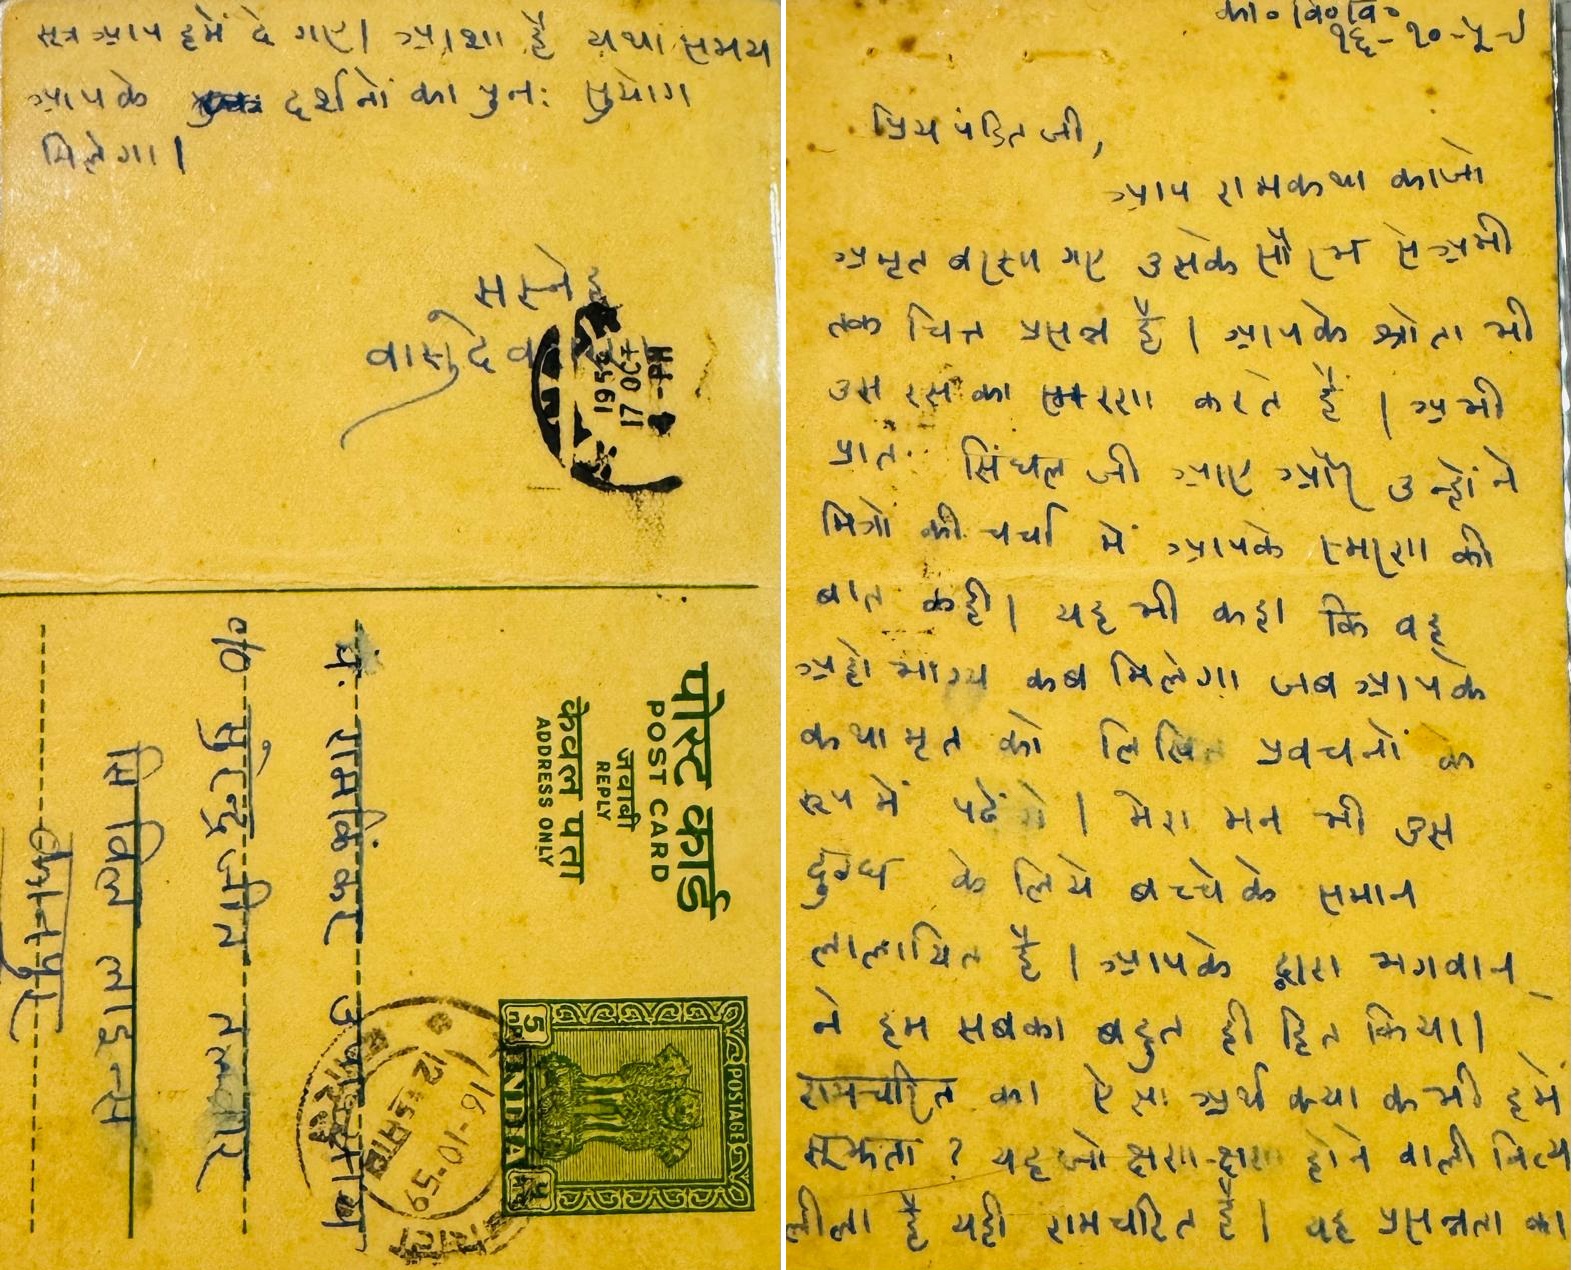 का० वि० वि०
१६-१०-५९
प्रिय पंडित जी,
आप रामकथा का जो
अमृत बरसा गए उसके सौरभ से अभी
तक चित्त प्रसन्न है। आपके श्रोता भी
उस रस का स्मरण करते हैं। अभी
प्रातः सिंघल जी आए और उन्होंने
मित्रों की चर्चा में आपके स्मरण की
बात कही। यह भी कहा कि वह
अहो भाग्य कब मिलेगा जब आपके
कथामृत को लिखित प्रवचनों के
रूप में पढेंगे। मेरा मन भी उस
दुग्ध के लिये बच्चे के समान
लालायित है। आपके द्वारा भगवान
ने हम सबका बहुत ही हित किया।
रामचरित का ऐसा अर्थ क्या कभी हमें
सूझता? यह जो क्षण-क्षण होने वाली नित्य
लीला है यही रामचरित है। यह प्रसन्नता का
सूत्र आप हमें दे गए। आशा है यथा समय
आपके दर्शनों का पुनः सुयोग
मिलेगा।
सस्नेह
वासुदेव
4-PM
17 OCT
1959
पोस्ट कार्ड
POST CARD
जवाबी
REPLY
केवल पता
ADDRESS ONLY
POSTAGE
5 nP INDIA
16-10-59
पं. रामकिंकर उपाध्याय
c/o सुरेन्द्रजीत तलवार
सिविल लाइन्स
कानपुर